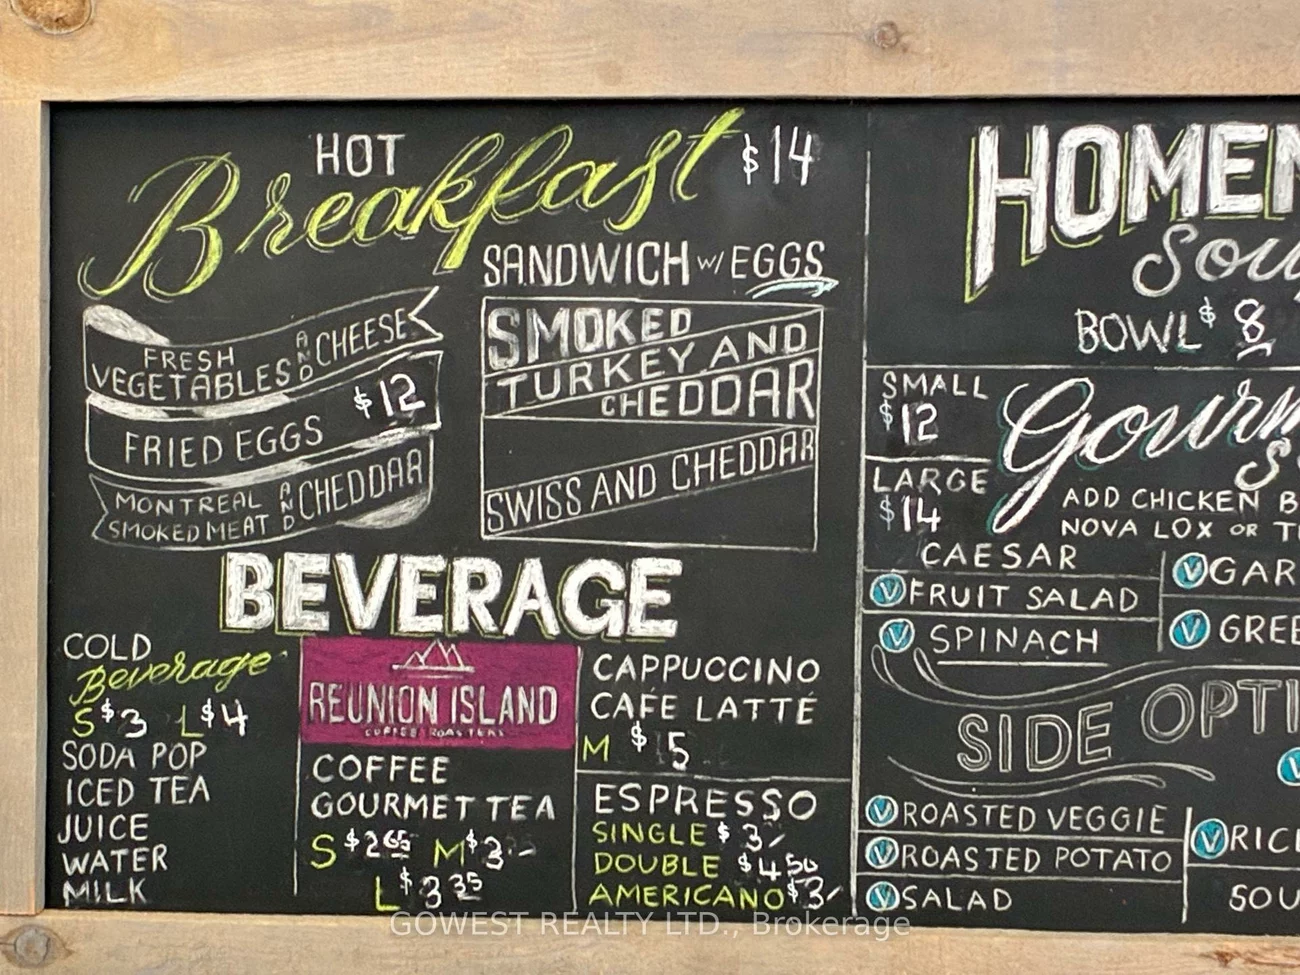 HOT
Breakfast $14
SANDWICH w/ EGGS
FRESH
VEGETABLES AND CHEESE
FRIED EGGS $12
MONTREAL
SMOKED MEAT AND CHEDDAR
SMOKED
TURKEY AND
CHEDDAR
SWISS AND CHEDDAR
BEVERAGE
COLD
Beverage
S $3 L $4
SODA POP
ICED TEA
JUICE
WATER
MILK
REUNION ISLAND
COFFEE ROASTERS
COFFEE
GOURMET TEA
S $2 65 M $3
L $3 35
CAPPUCCINO
CAFE LATTE
M $5
ESPRESSO
SINGLE $3/
DOUBLE $4 50
AMERICANO $3/
HOMEM
Sou
BOWL $8
SMALL
$12
LARGE
$14
Gourm
S
ADD CHICKEN B
NOVA LOX OR T
CAESAR
V FRUIT SALAD
V SPINACH
V GAR
V GREE
SIDE OPTI
V ROASTED VEGGIE
V ROASTED POTATO
V SALAD
V
V RIC
SOU
GOWEST REALTY LTD., Brokerage